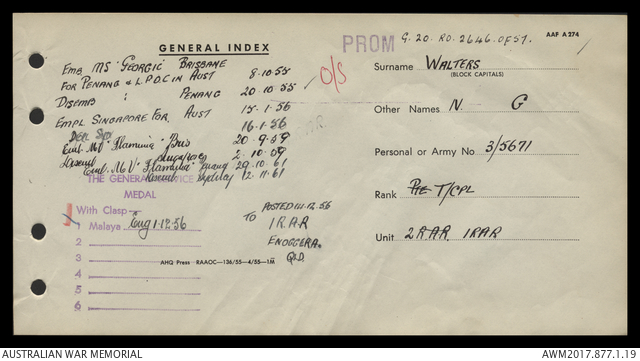 GENERAL INDEX
Emb MS "Georgic" Brisbane
For Penang & L.P.O.C in Aust 8.10.55
Disemb " Penang 20.10.55
Empl Singapore For Aust 15.1.56
16.1.56
Emb. MV "Flaminia" Bris 20 9.59
Disemb Singapore 2.10.59
Emb. MV "Flaminia" 29.10.61
Disemb Sydney 12.11.61
O/S
THE GENERAL SERVICE
MEDAL
With Clasp
1 Malaya 1.12.56
2
3
4
5
6
AHQ Press RAAOC—136/55—4/55—1M
TO
POSTED 111.12.56
1 RAR
ENOGGERA.
QLD.
PROM
G.20. RO.2646. OF57.
AAF A 274
Surname WALTERS
(BLOCK CAPITALS)
Other Names N G
Personal or Army No 3/5671
Rank Pte T/CPL
Unit 2 RAR. 1RAR
AUSTRALIAN WAR MEMORIAL
AWM2017.877.1.19